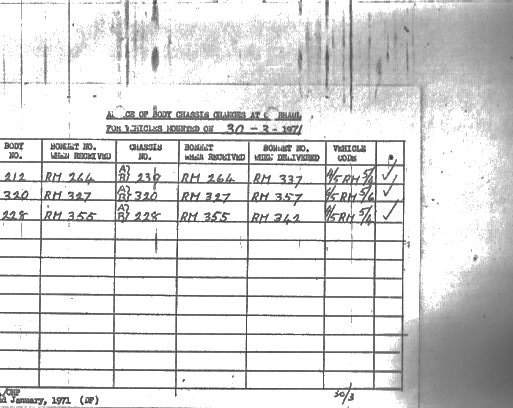 OF BODY CHASSIS CHANGES AT
FOR VEHICLES MOUNTED ON 30-3-1971
BODY NO. BONNET NO. WHEN RECEIVED CHASSIS NO. BONNET WHEN RECEIVED BONNET NO. WHEN DELIVERED VEHICLE CODE
212 RM 264 A) B) 239 RM 264 RM 337 4/5 RM 5/4 ✓
320 RM 327 A) B) 320 RM 327 RM 357 4/5 RM 5/6 ✓
228 RM 355 A) B) 228 RM 355 RM 342 4/5 RM 5/4 ✓
January, 1971 (DF)
30/3